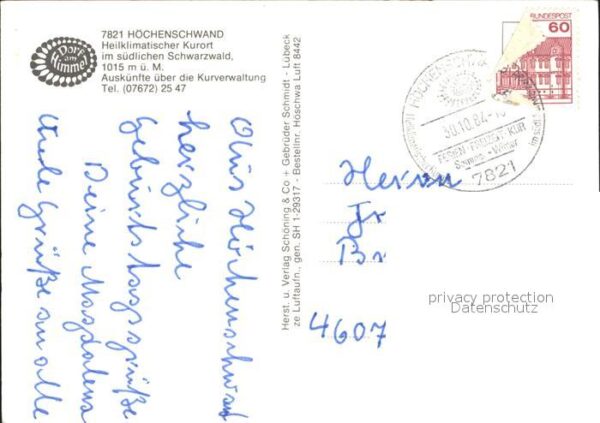 7821 HÖCHENSCHWAND
Heilklimatischer Kurort
im südlichen Schwarzwald,
1015 m ü. M.
Auskünfte über die Kurverwaltung
Tel. (07672) 25 47
Dorf am Himmel
Aus Höchenschwand
herzliche
Geburtstagsgrüße
Deine Magdalena
Viele Grüße an alle
Herst. u. Verlag Schöning & Co + Gebrüder Schmidt - Lübeck
ze Luftaufn., gen. SH 1-29317 - Bestellnr. Höschwa Luft 8442
DEUTSCHE BUNDESPOST
60
HÖCHENSCHWAND
30.10.84
FERIEN - FREIZEIT - KUR
Sommer - Winter
7821
Herrn
Fr
Br
4607
privacy protection
Datenschutz